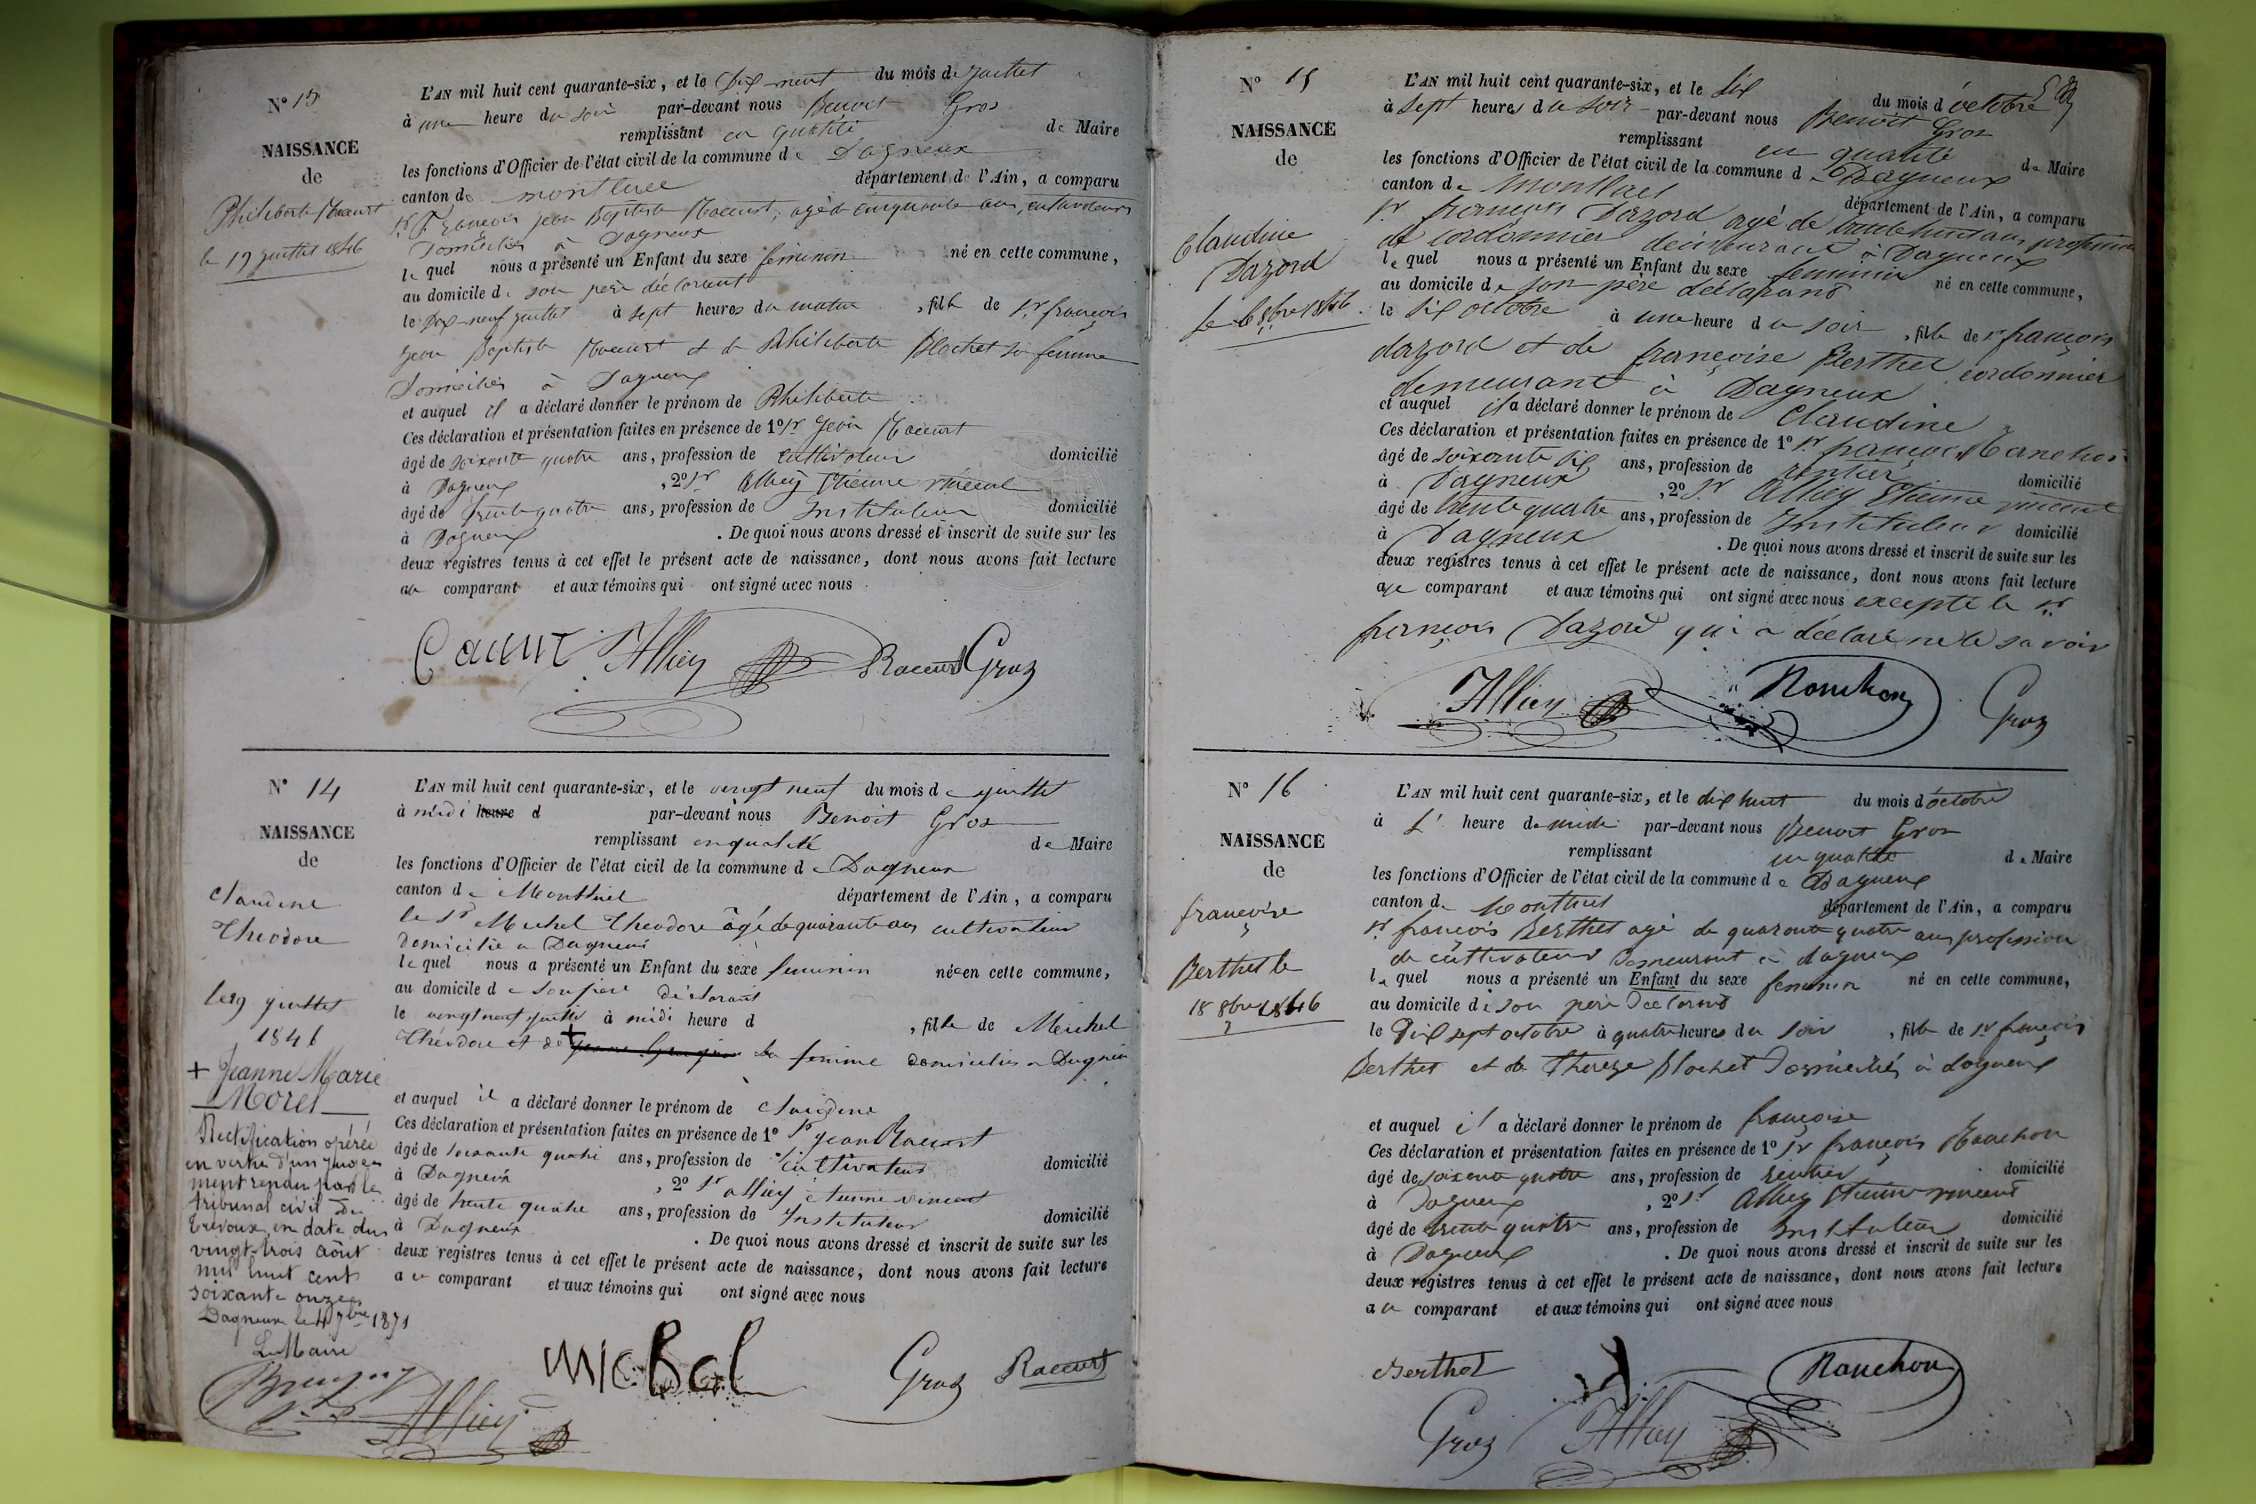 N° 13
NAISSANCE
de
Philiberte Raccurt
le 19 juillet 1846
L'AN mil huit cent quarante-six, et le dix-neuf du mois de juillet
à une heure du soir par-devant nous Benoit Gros
remplissant en qualité de Maire
les fonctions d'Officier de l'état civil de la commune de Dagneux
canton de montluel département de l'Ain, a comparu
sr François jean Baptiste Raccurt, agé de cinquante ans, cultivateur
Domicilié à Dagneux
lequel nous a présenté un Enfant du sexe féminin né en cette commune,
au domicile de son père déclarant
le dix-neuf juillet à sept heures du matin, fille de sr françois
jean Baptiste Raccurt et de Philiberte Blochet sa femme
Domiciliés à Dagneux
et auquel il a déclaré donner le prénom de Philiberte
Ces déclaration et présentation faites en présence de 1° sr Jean Raccurt
âgé de soixante quatre ans, profession de cultivateur domicilié
à Dagneux, 2° sr Alliey Etienne vincent
âgé de trente quatre ans, profession de Instituteur domicilié
à Dagneux. De quoi nous avons dressé et inscrit de suite sur les
deux registres tenus à cet effet le présent acte de naissance, dont nous avons fait lecture
au comparant et aux témoins qui ont signé avec nous
Alliey Raccurt Gros
N° 14
NAISSANCE
de
Claudine
Théodore
le 29 juillet
1846
+ Jeanne Marie
Morel
Rectification opérée
en vertu d'un juge
ment rendu par le
tribunal civil de
Trévoux en date du
vingt-trois août
mil huit cent
soixante onze
Dagneux le 4 7bre 1871
Le Maire
L'AN mil huit cent quarante-six, et le vingt neuf du mois de juillet
à midi heure d par-devant nous Benoit Gros
remplissant en qualité de Maire
les fonctions d'Officier de l'état civil de la commune de Dagneux
canton de Montluel département de l'Ain, a comparu
le sr Michel Théodore âgé de quarante ans cultivateur
domicilié à Dagneux
lequel nous a présenté un Enfant du sexe feminin née en cette commune,
au domicile de son père déclarant
le vingt neuf juillet à midi heure d, fille de Michel
Théodore et de + sa femme domiciliés a Dagneux
et auquel il a déclaré donner le prénom de Claudine
Ces déclaration et présentation faites en présence de 1° sr Jean Raccurt
âgé de soixante quatre ans, profession de cultivateur domicilié
à Dagneux, 2° sr alliey étienne vincent
âgé de trente quatre ans, profession de Instituteur domicilié
à Dagneux. De quoi nous avons dressé et inscrit de suite sur les
deux registres tenus à cet effet le présent acte de naissance, dont nous avons fait lecture
au comparant et aux témoins qui ont signé avec nous
Michel Gros Raccurt
Alliey
N° 15
NAISSANCE
de
Claudine
Dazord
le 6 8bre 1846
L'AN mil huit cent quarante-six, et le six du mois d'octobre
à sept heures du soir par-devant nous Benoit Gros
remplissant en qualité de Maire
les fonctions d'Officier de l'état civil de la commune de Dagneux
canton de Montluel département de l'Ain, a comparu
sr françois Dazord agé de trente huit ans profession
de cordonnier demeurant à Dagneux
lequel nous a présenté un Enfant du sexe feminin né en cette commune,
au domicile de son père déclarant
le six octobre à une heure du soir, fille de sr françois
dazord et de françoise Berthet cordonnier
demeurant à Dagneux
et auquel il a déclaré donner le prénom de Claudine
Ces déclaration et présentation faites en présence de 1° sr françois Ranchon
âgé de soixante six ans, profession de rentier domicilié
à Dagneux, 2° sr Alliey Etienne vincent
âgé de trente quatre ans, profession de Instituteur domicilié
à Dagneux. De quoi nous avons dressé et inscrit de suite sur les
deux registres tenus à cet effet le présent acte de naissance, dont nous avons fait lecture
au comparant et aux témoins qui ont signé avec nous excepté le sr
françois Dazord qui a déclaré ne le savoir
Alliey Ranchon Gros
N° 16
NAISSANCE
de
françoise
Berthet le
18 8bre 1846
L'AN mil huit cent quarante-six, et le dix huit du mois d'octobre
à l' heure de midi par-devant nous Benoit Gros
remplissant en qualité de Maire
les fonctions d'Officier de l'état civil de la commune de Dagneux
canton de Montluel département de l'Ain, a comparu
sr françois Berthet agé de quarante quatre ans profession
de cultivateur demeurant à dagneux
lequel nous a présenté un Enfant du sexe feminin né en cette commune,
au domicile de son père déclarant
le dix sept octobre à quatre heures du soir, fille de sr françois
Berthet et de Thereze Blochet Domiciliés à dagneux
et auquel il a déclaré donner le prénom de françoise
Ces déclaration et présentation faites en présence de 1° sr françois Ranchon
âgé de soixante quatre ans, profession de rentier domicilié
à Dagneux, 2° sr Alliey Etienne vincent
âgé de trente quatre ans, profession de Instituteur domicilié
à Dagneux. De quoi nous avons dressé et inscrit de suite sur les
deux registres tenus à cet effet le présent acte de naissance, dont nous avons fait lecture
au comparant et aux témoins qui ont signé avec nous
Berthet Ranchon
Gros Alliey